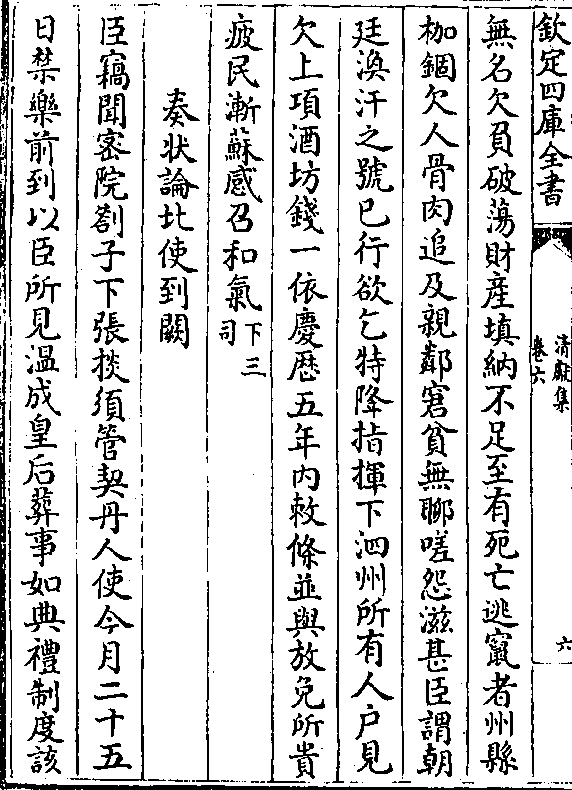 欽定四庫全書
清獻集
卷六
六
無名欠負破蕩財産填納不足至有死亡逃竄者州縣
枷錮欠人骨肉追及親鄰窘貧無聊嗟怨滋甚臣謂朝
廷渙汗之號已行欲乞特降指揮下泗州所有人户見
欠上項酒坊錢一依慶厯五年内敕條並與放免所貴
疲民漸蘇感召和氣下三司
奏狀論北使到闕
臣竊聞密院劄子下張掞須管契丹人使今月二十五
日禁樂前到以臣所見温成皇后葬事如典禮制度該